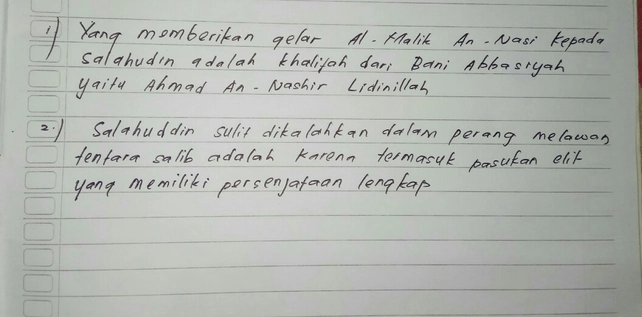 1) Yang memberikan gelar Al-Malik An-Nasi kepada
Salahudin adalah khalifah dari Bani Abbasiyah
yaitu Ahmad An-Nashir Lidinillah
2.) Salahuddin sulit dikalahkan dalam perang melawan
tentara salib adalah karena termasuk pasukan elit
yang memiliki persenjataan lengkap